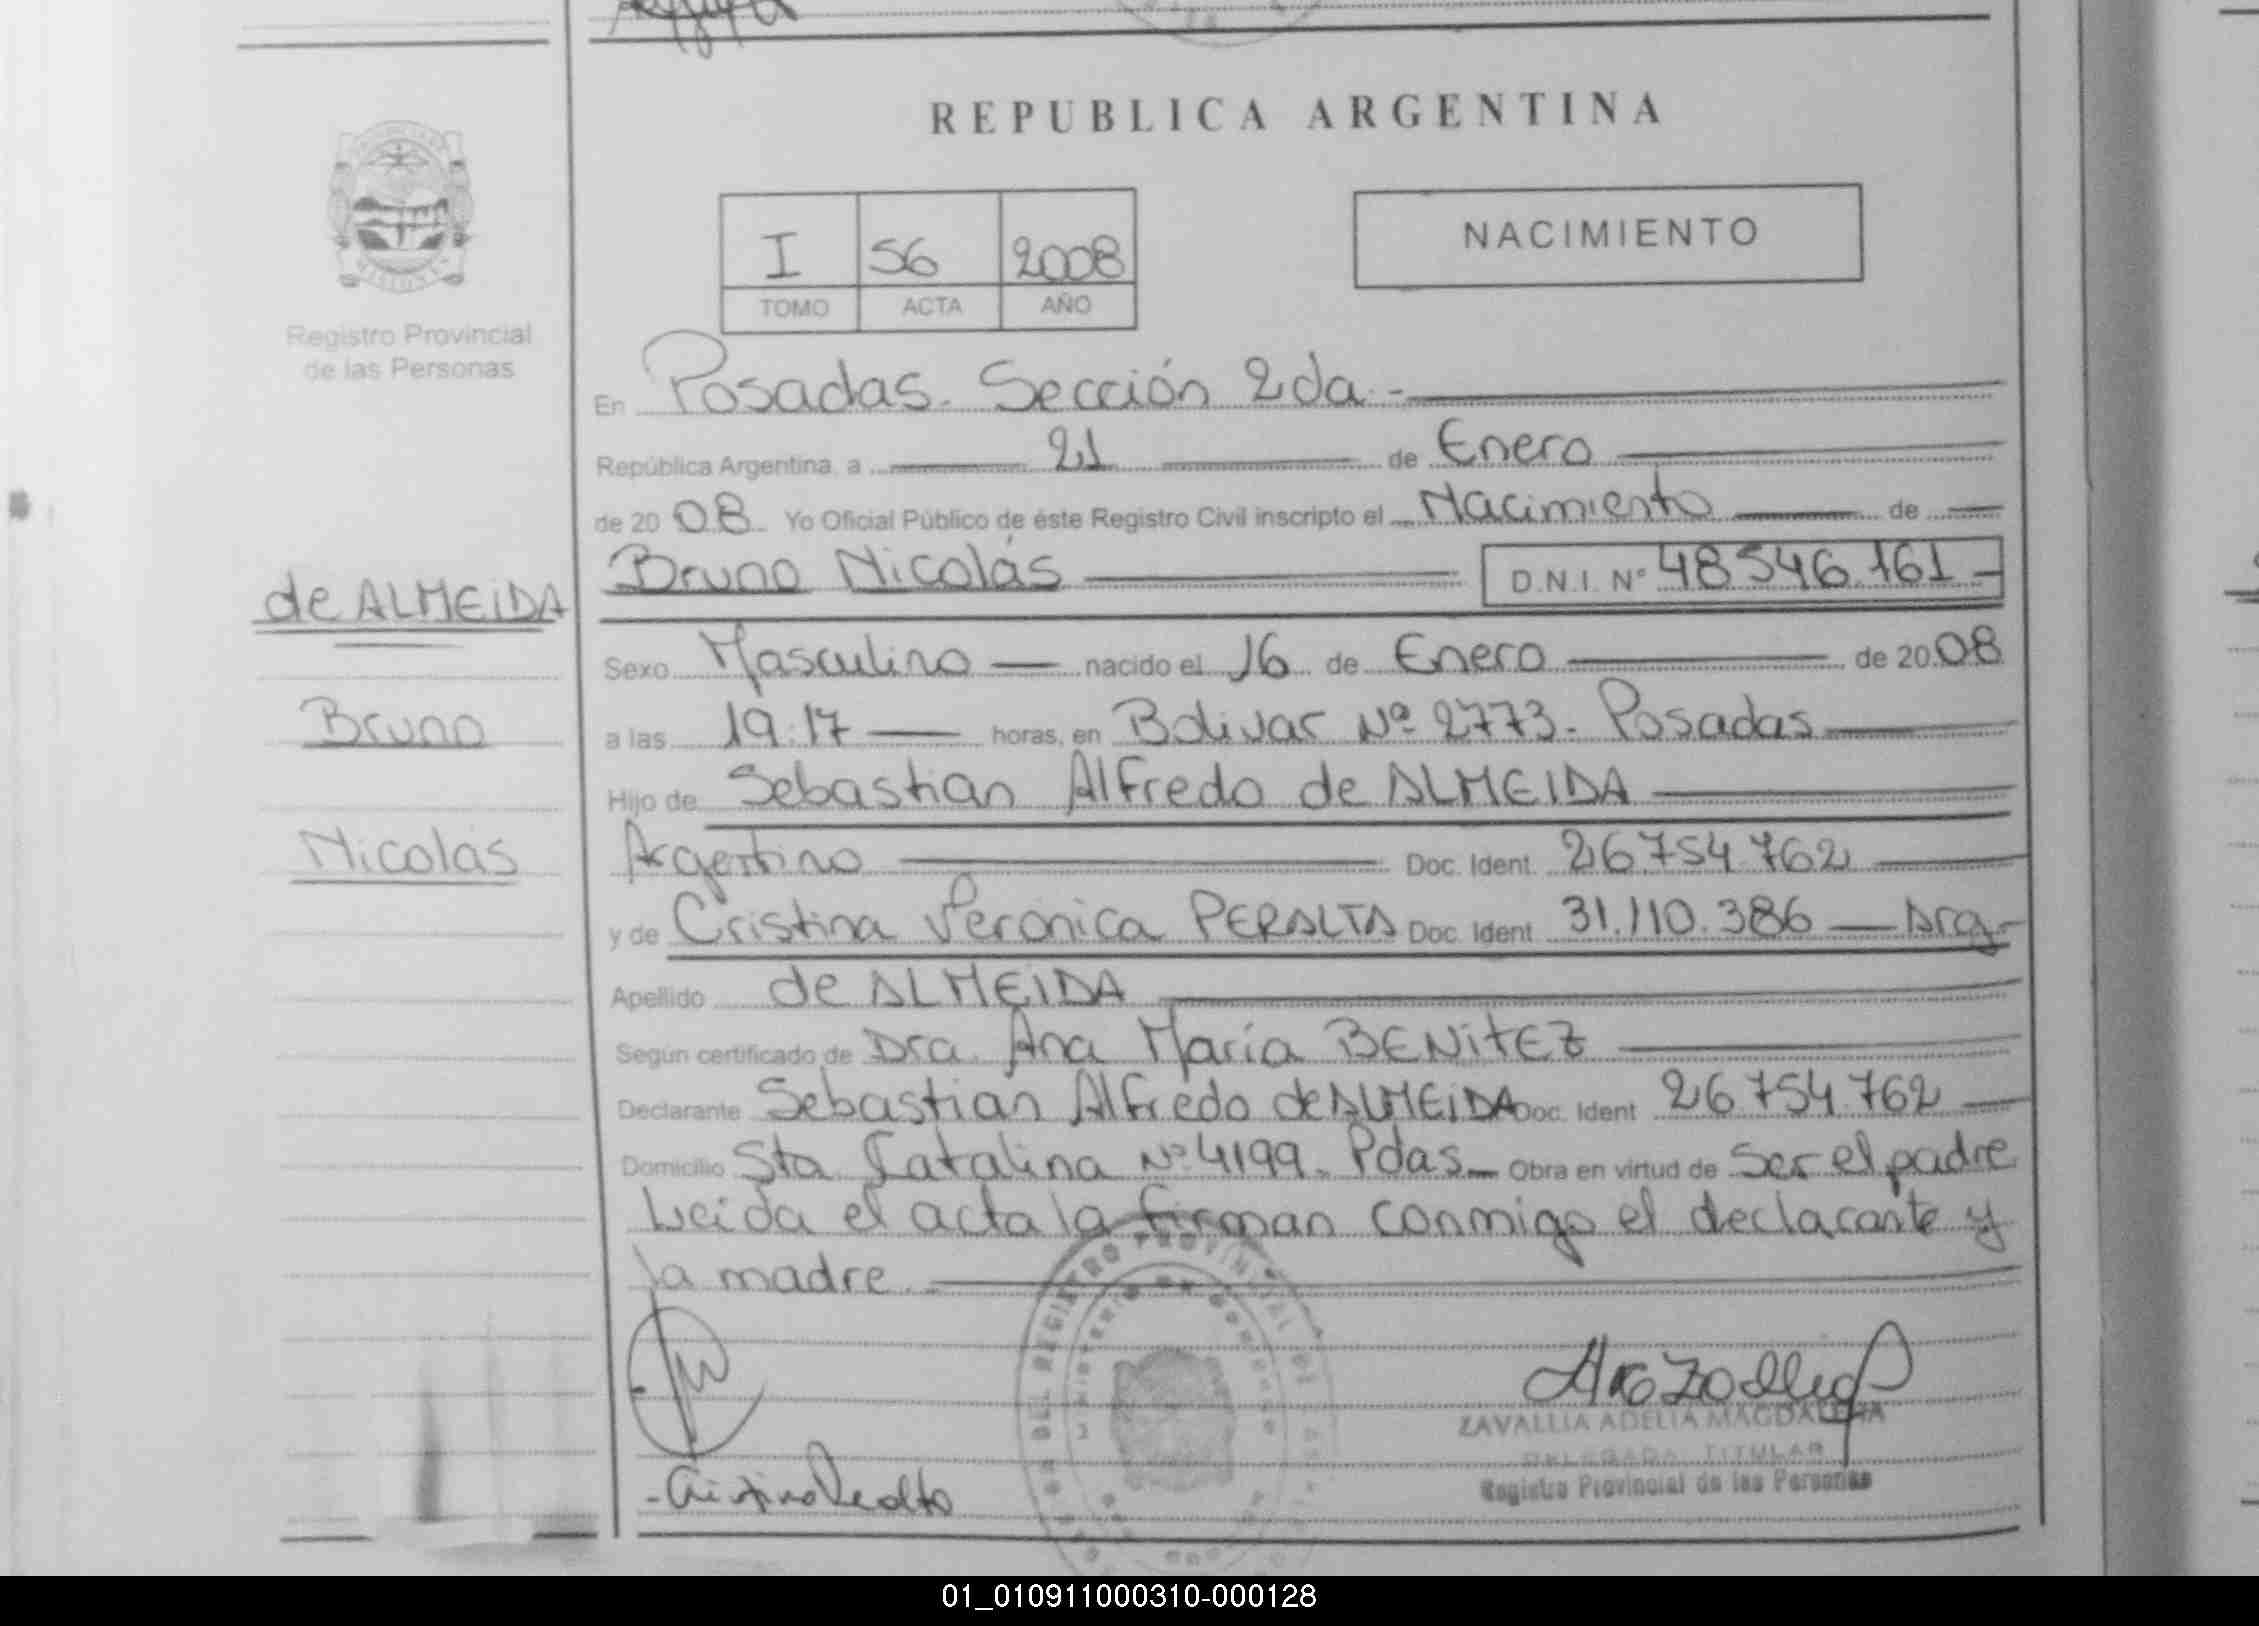 REPUBLICA ARGENTINA
NACIMIENTO
I 56 2008
TOMO ACTA AÑO
Registro Provincial
de las Personas
En Posadas. Sección 2da.-
República Argentina, a 21 de Enero
de 2008 Yo Oficial Público de éste Registro Civil inscripto el Nacimiento de
de ALMEIDA
Bruno Nicolás D.N.I. Nº 48546.161-
Sexo Masculino nacido el 16 de Enero de 2008
Bruno
a las 19:17 horas, en Bolivar Nº 2773. Posadas
Hijo de Sebastian Alfredo de ALMEIDA
Nicolás
Argentino Doc. Ident. 26754.762
y de Cristina Veronica PERALTA Doc. Ident 31.110.386 Arg-
Apellido de ALMEIDA
Según certificado de Dra. Ana María BENITEZ
Declarante Sebastián Alfredo de ALMEIDA Doc. Ident 26.754.762
Domicilio Sta Catalina Nº 4199. Pdas. Obra en virtud de ser el padre
Leida el acta la firman conmigo el declarante y
la madre.
DEL REGISTRO PROVINCIAL DE
MINISTERIO DE GOBIERNO
ZAVALLIA ADELIA MAGDALENA
DELEGADA TITULAR
Registro Provincial de las Personas
Cristina Peralta
01_010911000310-000128